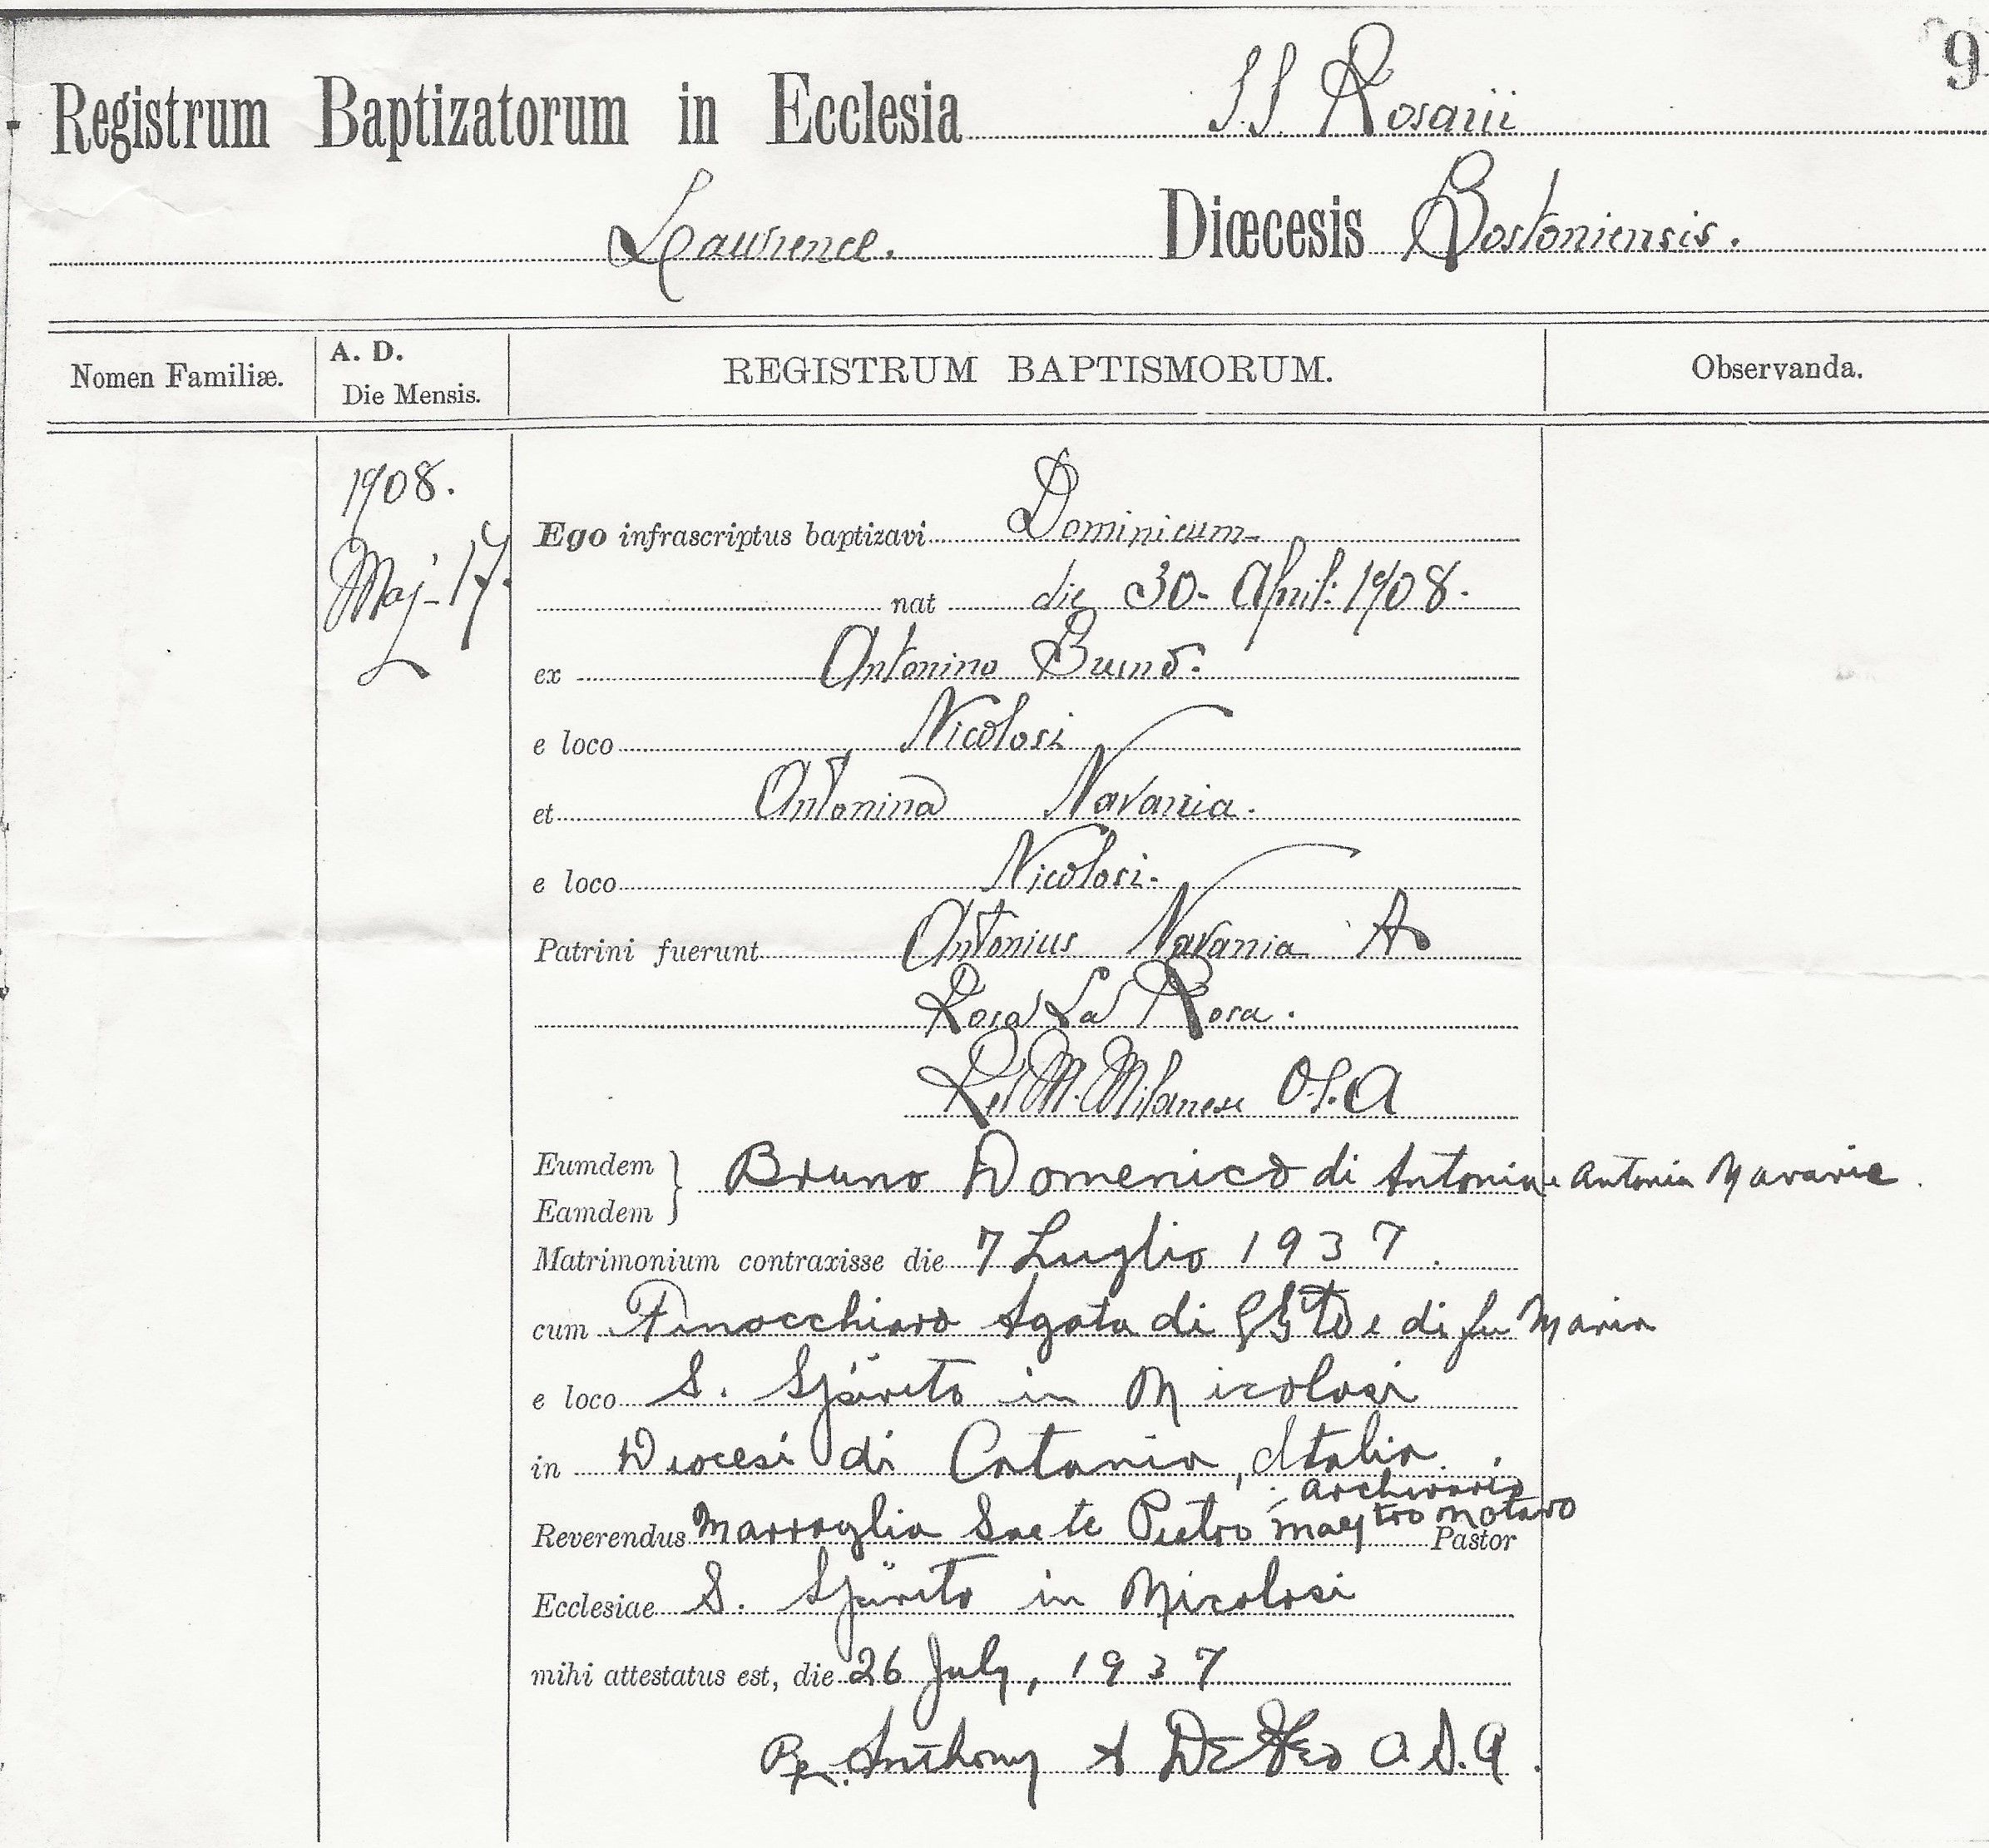 9
Registrum Baptizatorum in Ecclesia S.S. Rosarii
Lawrence. Diœcesis Bostoniensis.
Nomen Familiæ.
A. D.
Die Mensis.
REGISTRUM BAPTISMORUM.
Observanda.
1908.
Maj- 17.
Ego infrascriptus baptizavi Dominicum
nat die 30- April: 1908.
ex Antonino Bruno.
e loco Nicolosi
et Antonina Navaria.
e loco Nicolosi.
Patrini fuerunt Antonius Navaria
Rosa La Rosa.
M. Milanese O.S.A
Eumdem
Eamdem } Bruno Domenico di Antonino e Antonia Navaria.
Matrimonium contraxisse die 7 Luglio 1937.
cum Finocchiaro Agata di e di fu Maria
e loco S. Spirito in Nicolosi
in Diocesi di Catania, Italia.
archivario
Reverendus Pietro maestro notaro Pastor
Ecclesiae S. Spirito in Nicolosi
mihi attestatus est, die 26 July, 1937
Anthony A O.S.A.